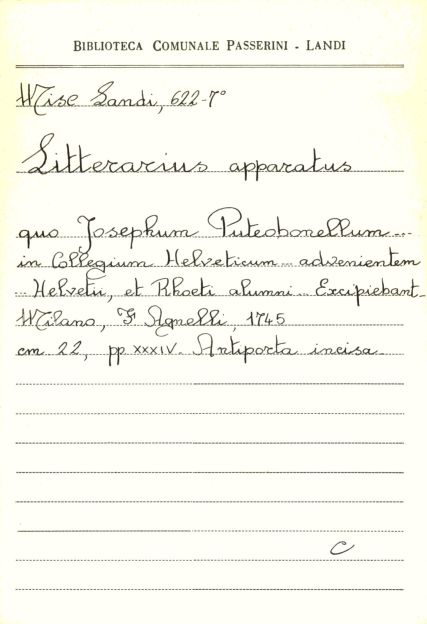 BIBLIOTECA COMUNALE PASSERINI - LANDI
Misc Landi, 622-7°
Litterarius apparatus
quo Josephum Puteobonellum...
in Collegium Helveticum... advenientem
... Helvetii, et Rhoeti alumni... Excipiebant_
Milano, F. Agnelli, 1745
cm 22, pp XXXIV. Antiporta incisa
C